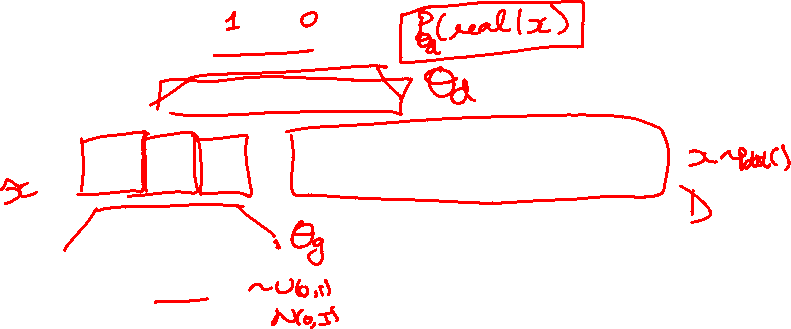 1 0
P_θd(real|x)
θd
x
x ~ Pdata()
D
θg
~U(0,1)
N(0,I)